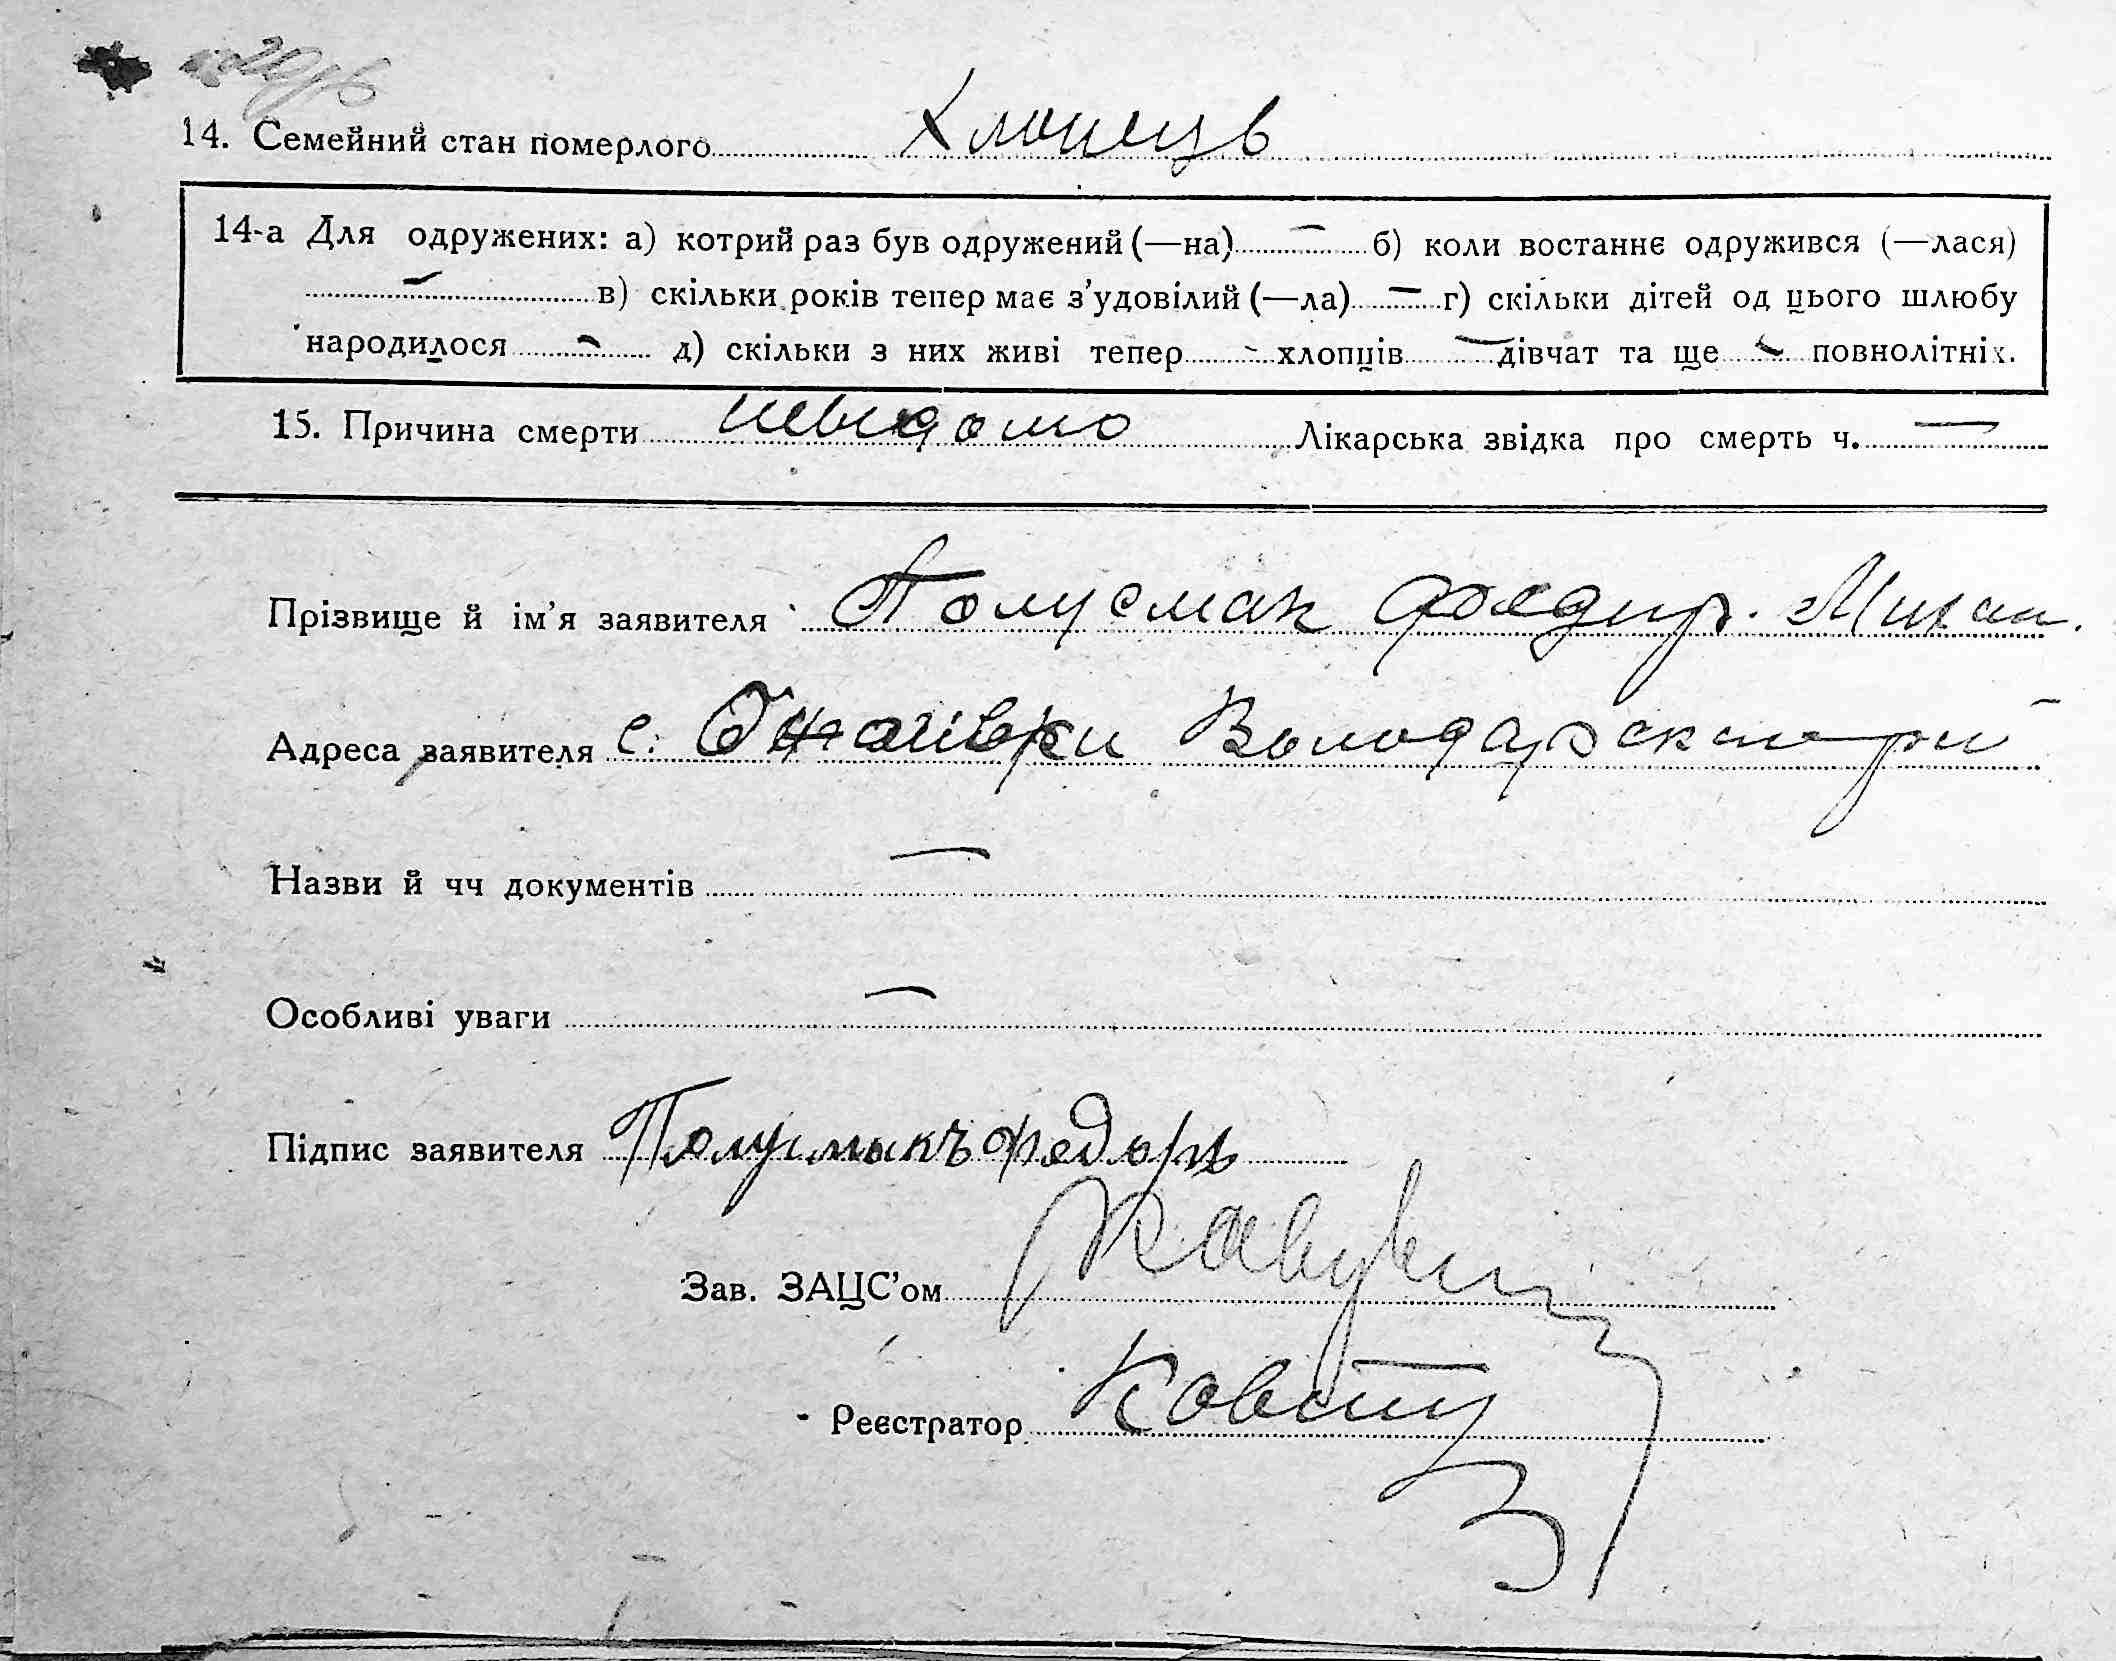 14. Семейний стан померлого Хлопець
14-а Для одружених: а) котрий раз був одружений (—на) — б) коли востаннє одружився (—лася)
— в) скільки років тепер має з’удовілий (—ла) — г) скільки дітей од цього шлюбу
народилося — д) скільки з них живі тепер - хлопців — дівчат та ще — повнолітніх.
15. Причина смерти невідомо Лікарська звідка про смерть ч. —
Прізвище й ім’я заявителя Полусмак Михай.
Адреса заявителя с. Володарск
Назви й чч документів —
Особливі уваги —
Підпис заявителя Полусмакъ Федоръ
Зав. ЗАЦС’ом
Реєстратор